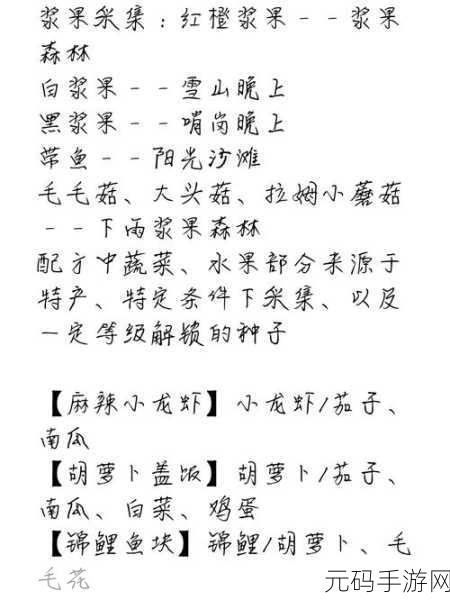 浆果采集：红橙浆果--浆果
森林
白浆果--雪山晚上
黑浆果--哨岗晚上
带鱼--阳光沙滩
毛毛菇、大头菇、拉姆小蘑菇
--下雨浆果森林
配方中蔬菜、水果部分来源于
特产、特定条件下采集、以及
一定等级解锁的种子
【麻辣小龙虾】小龙虾/茄子、
南瓜
【胡萝卜盖饭】胡萝卜/茄子、
南瓜、白菜、鸡蛋
【锦鲤鱼块】锦鲤/胡萝卜、毛
毛花
元码手游网